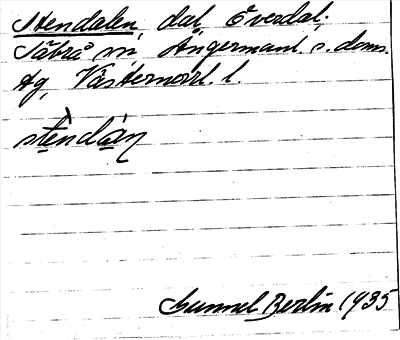 Stendalen, dal, Överdal,
Säbrå sn, Ångermanl. s. doms.
tg, Västernorrl. l.
stèndán
Gunnel Berlin 1935